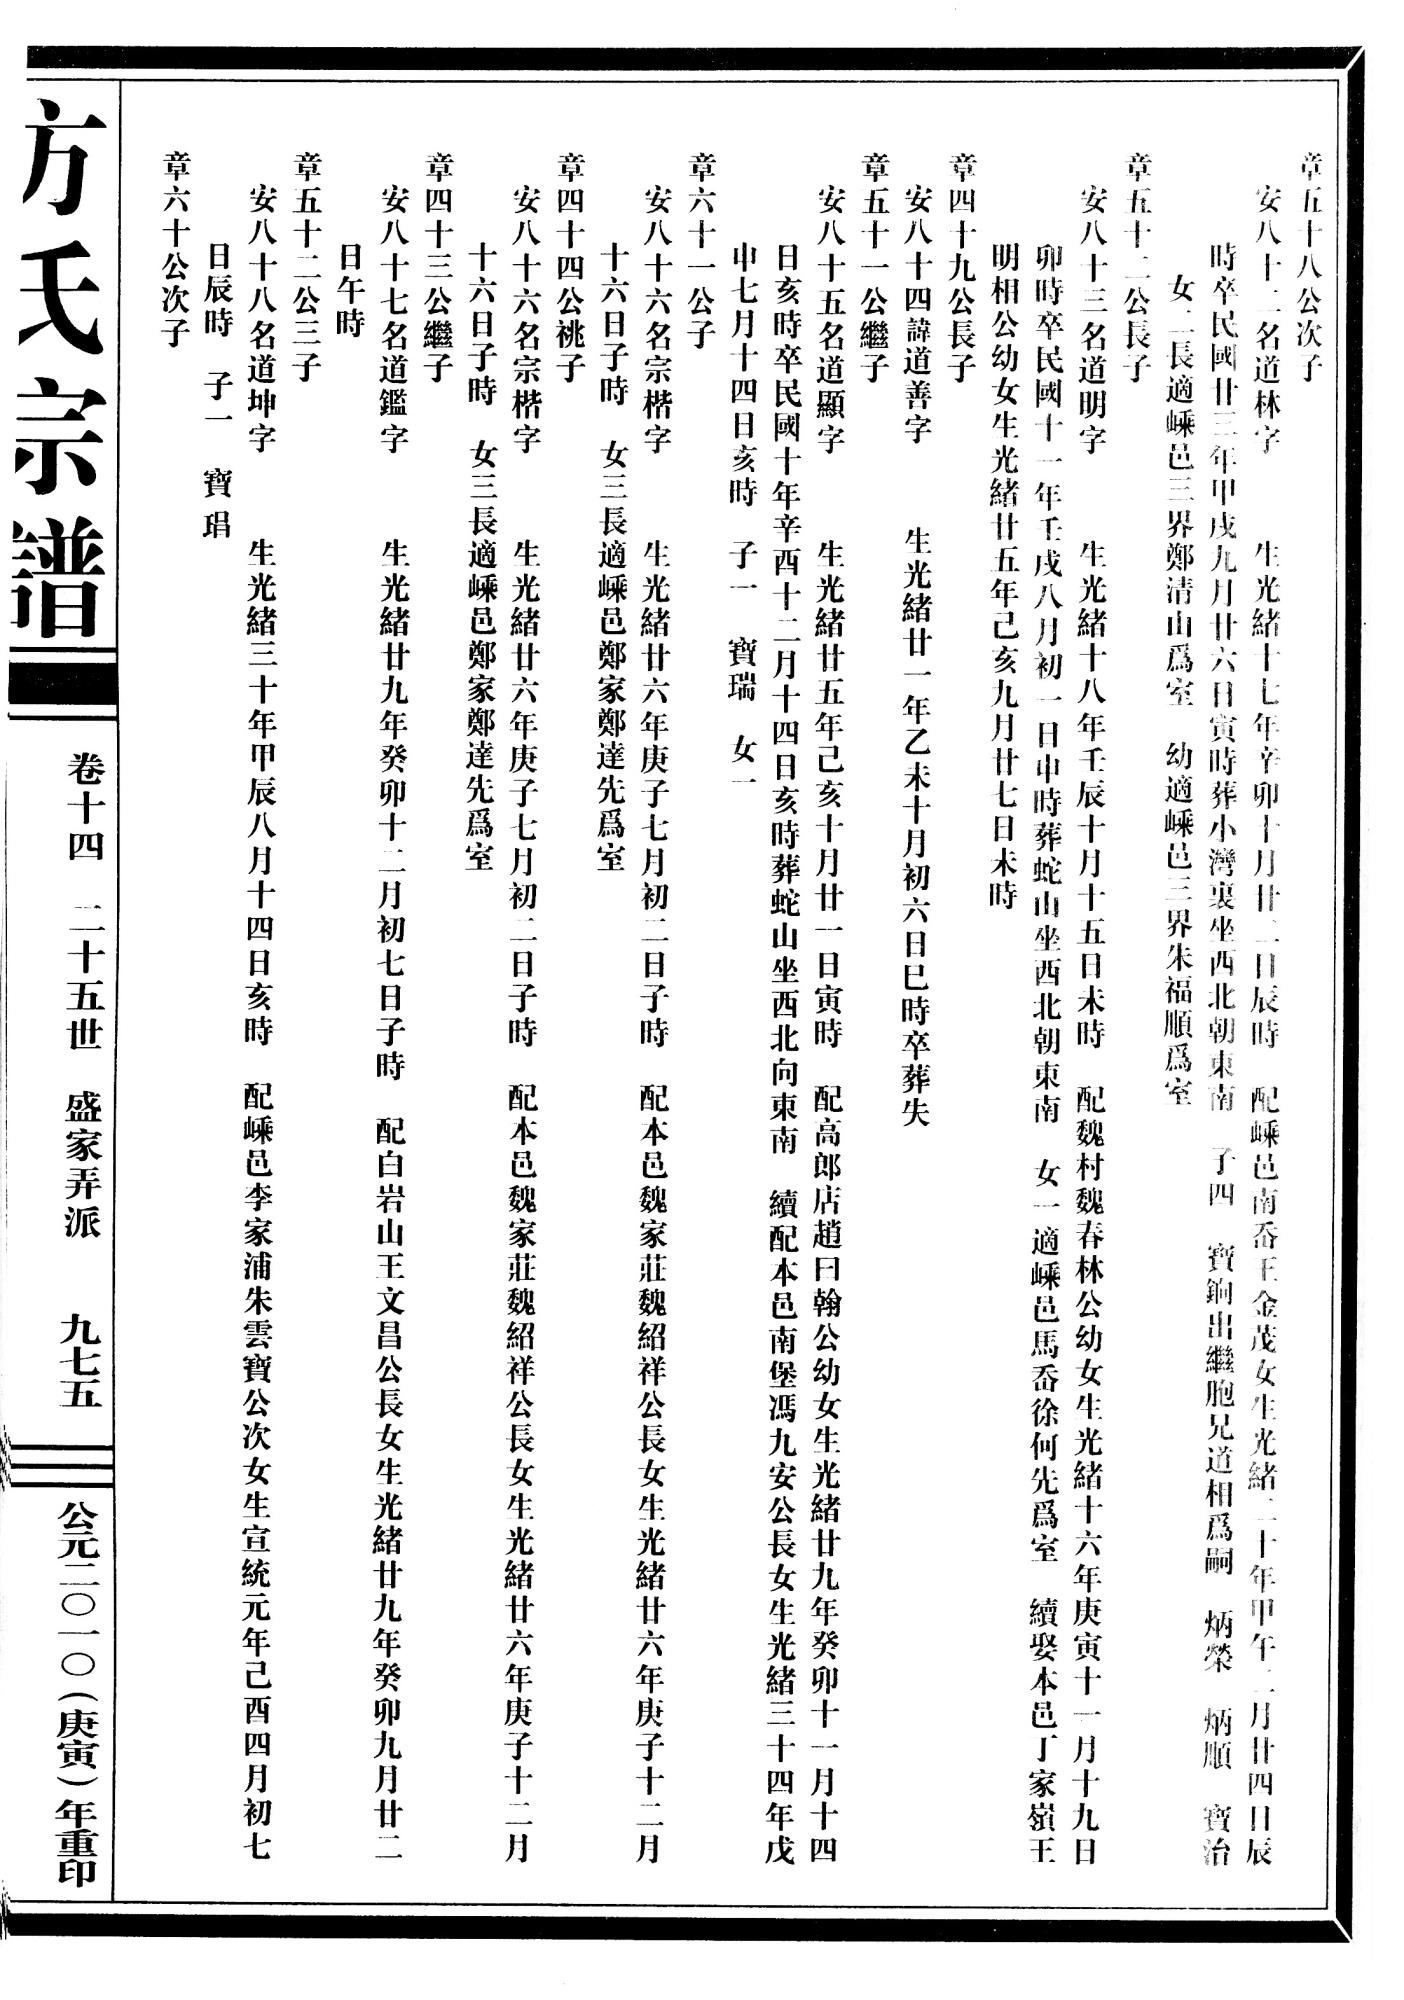 章五十八公次子
安八十二名道林字　生光緒十七年辛卯十月廿二日辰時　配嵊邑南岙王金茂女生光緒二十年甲午二月廿四日辰
時卒民國廿三年甲戌九月廿六日寅時葬小灣裏坐西北朝東南　子四　寶銄出繼胞兄道相爲嗣　炳榮　炳順　寶治
女二長適嵊邑三界鄭清山爲室　幼適嵊邑三界朱福順爲室
章五十二公長子
安八十三名道明字　生光緒十八年壬辰十月十五日未時　配魏村魏春林公幼女生光緒十六年庚寅十一月十九日
卯時卒民國十一年壬戌八月初一日申時葬蛇山坐西北朝東南　女一適嵊邑馬岙徐何先爲室　續娶本邑丁家嶺王
明相公幼女生光緒廿五年己亥九月廿七日未時
章四十九公長子
安八十四諱道善字　生光緒廿一年乙未十月初六日巳時卒葬失
章五十一公繼子
安八十五名道顯字　生光緒廿五年己亥十月廿一日寅時　配高郎店趙曰翰公幼女生光緒廿九年癸卯十一月十四
日亥時卒民國十年辛酉十二月十四日亥時葬蛇山坐西北向東南　續配本邑南堡馮九安公長女生光緒三十四年戊
申七月十四日亥時　子一　寶瑞　女一
章六十一公子
安八十六名宗楷字　生光緒廿六年庚子七月初二日子時　配本邑魏家莊魏紹祥公長女生光緒廿六年庚子十二月
十六日子時　女三長適嵊邑鄭家鄭達先爲室
章四十四公祧子
安八十六名宗楷字　生光緒廿六年庚子七月初二日子時　配本邑魏家莊魏紹祥公長女生光緒廿六年庚子十二月
十六日子時　女三長適嵊邑鄭家鄭達先爲室
章四十三公繼子
安八十七名道鑑字　生光緒廿九年癸卯十二月初七日子時　配白岩山王文昌公長女生光緒廿九年癸卯九月廿二
日午時
章五十二公三子
安八十八名道坤字　生光緒三十年甲辰八月十四日亥時　配嵊邑李家浦朱雲寶公次女生宣統元年己酉四月初七
日辰時　子一　寶琩
章六十公次子
方氏宗譜
卷十四　二十五世　盛家弄派　九七五
公元二〇一〇（庚寅）年重印